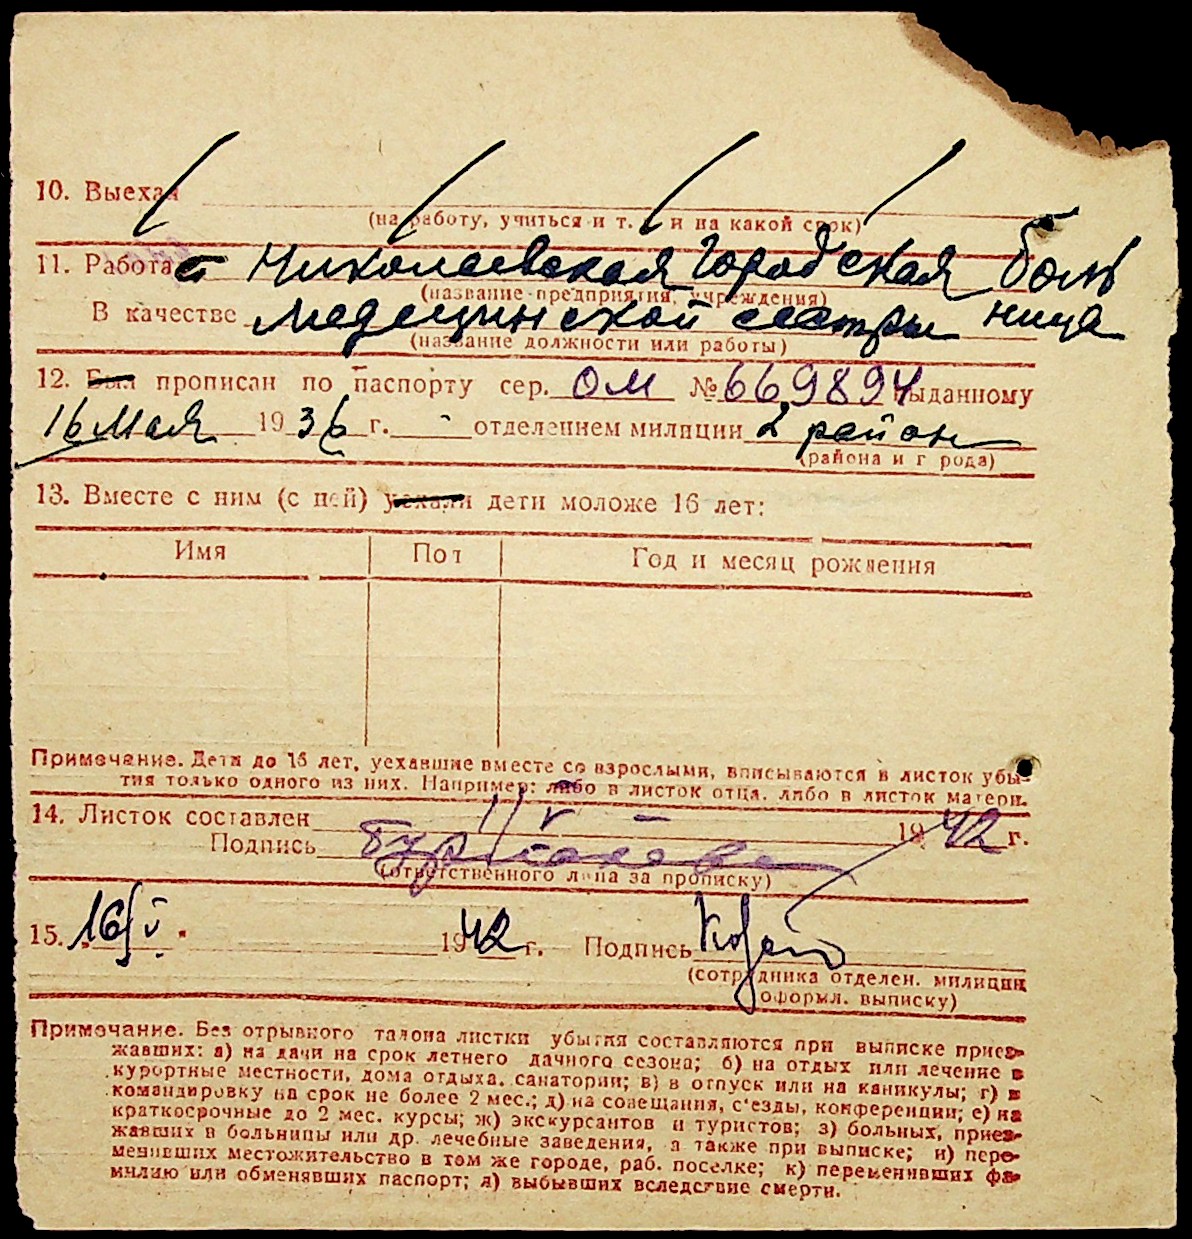 10. Выехал
(на работу, учиться и т. и на какой срок)
11. Работает Николаевская городская боль
(название предприятия, учреждения)
В качестве медецинской сестры ница
(название должности или работы)
12. Был прописан по паспорту сер. ОМ № 669894 выданному
16 мая 1936 г. отделением милиции 2 район
(района и города)
13. Вместе с ним (с ней) уехали дети моложе 16 лет:
Имя Пол Год и месяц рождения
Примечание. Дети до 16 лет, уехавшие вместе со взрослыми, вписываются в листок убы-
тия только одного из них. Например: либо в листок отца, либо в листок матери.
14. Листок составлен 1942 г.
Подпись
(ответственного лица за прописку)
15. 16/V 1942 г. Подпись
(сотрудника отделен. милиции
оформл. выписку)
Примечание. Без отрывного талона листки убытия составляются при выписке приез-
жавших: а) на дачи на срок летнего дачного сезона; б) на отдых или лечение в
курортные местности, дома отдыха, санатории; в) в отпуск или на каникулы; г) в
командировку на срок не более 2 мес.; д) на совещания, с'езды, конференции; е) на
краткосрочные до 2 мес. курсы; ж) экскурсантов и туристов; з) больных, приез-
жавших в больницы или др. лечебные заведения, а также при выписке; и) пере-
менивших местожительство в том же городе, раб. поселке; к) переменивших фа-
милию или обменявших паспорт; л) выбывших вследствие смерти.